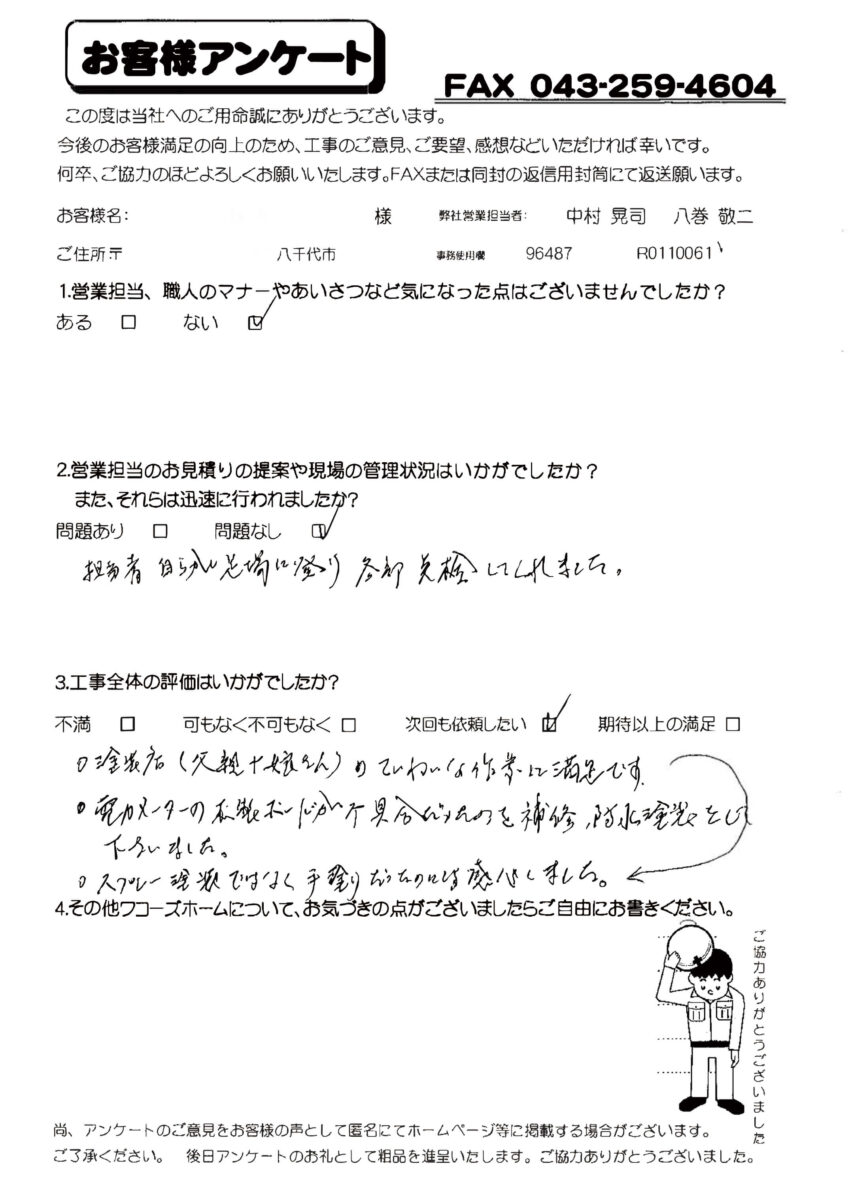 お客様アンケート
FAX 043-259-4604
この度は当社へのご用命誠にありがとうございます。
今後のお客様満足の向上のため、工事のご意見、ご要望、感想などいただければ幸いです。
何卒、ご協力のほどよろしくお願いいたします。FAXまたは同封の返信用封筒にて返送願います。
お客様名: 様 弊社営業担当者: 中村 晃司 八巻 敬二
ご住所〒 八千代市 事務使用欄 96487 R0110061
1.営業担当、職人のマナーやあいさつなど気になった点はございませんでしたか?
ある □ ない ☑
2.営業担当のお見積りの提案や現場の管理状況はいかがでしたか?
また、それらは迅速に行われましたか?
問題あり □ 問題なし ☑
担当者 自らが足場に登り 各部 点検してくれました。
3.工事全体の評価はいかがでしたか?
不満 □ 可もなく不可もなく □ 次回も依頼したい ☑ 期待以上の満足 □
○塗装店(父親+娘さん)のていねいな作業に満足です。
○電力メーターの木製ボードが不具合だったのを補修、防水塗装をして
下さいました。
○スプレー塗装ではなく手塗りだったのには感心しました。
4.その他ワコーズホームについて、お気づきの点がございましたらご自由にお書きください。
ご協力ありがとうございました
尚、アンケートのご意見をお客様の声として匿名にてホームページ等に掲載する場合がございます。
ご了承ください。 後日アンケートのお礼として粗品を進呈いたします。ご協力ありがとうございました。